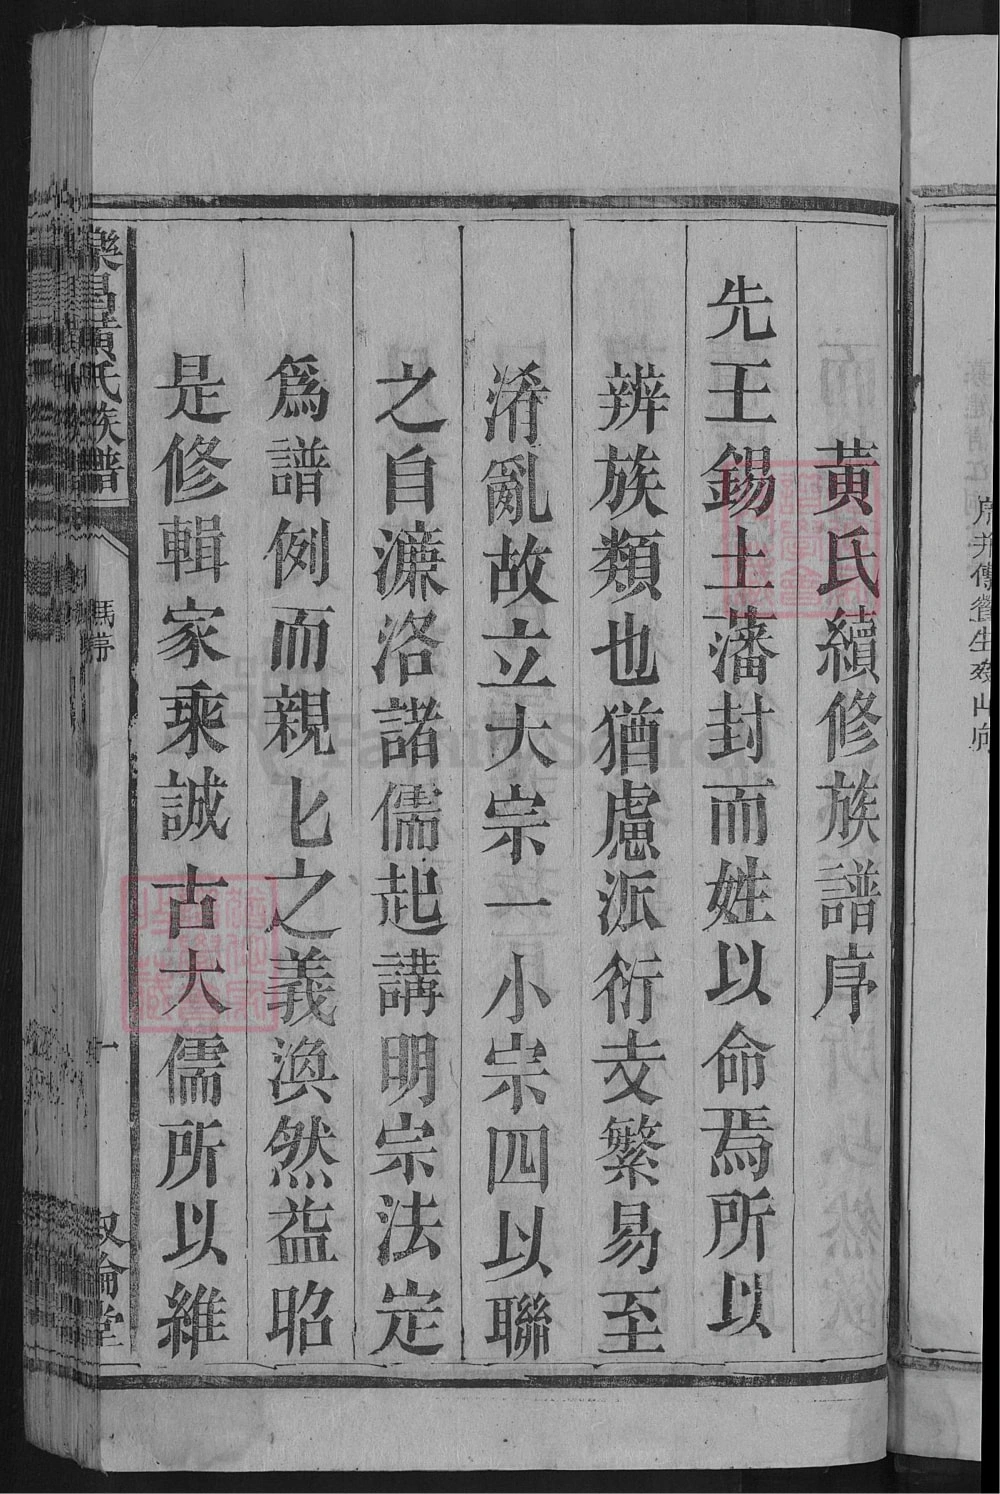 黃氏續修族譜序
先王錫土藩封而姓以命焉所以
辨族類也猶慮派衍支繁易至
淆亂故立大宗一小宗四以聯
之自濂洛諸儒起講明宗法定
為譜例而親匕之義渙然益昭
是修輯家乘誠古大儒所以維
樂昌黃氏族譜
一
FamilySearch